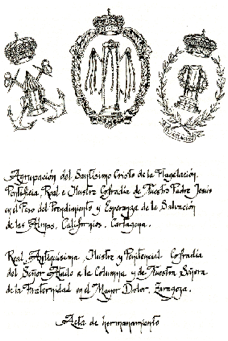 Agrupación del Santísimo Cristo de la Flagelación.
Pontificia, Real e Ilustre Cofradía de Nuestro Padre Jesús
en el Paso del Prendimiento y Esperanza de la Salvación
de las Almas, Californios. Cartagena.
Real, Antiquísima, Ilustre y Penitencial Cofradía
del Señor Atado a la Columna y de Nuestra Señora
de la Fraternidad en el Mayor Dolor, Zaragoza.
Acta de hermanamiento